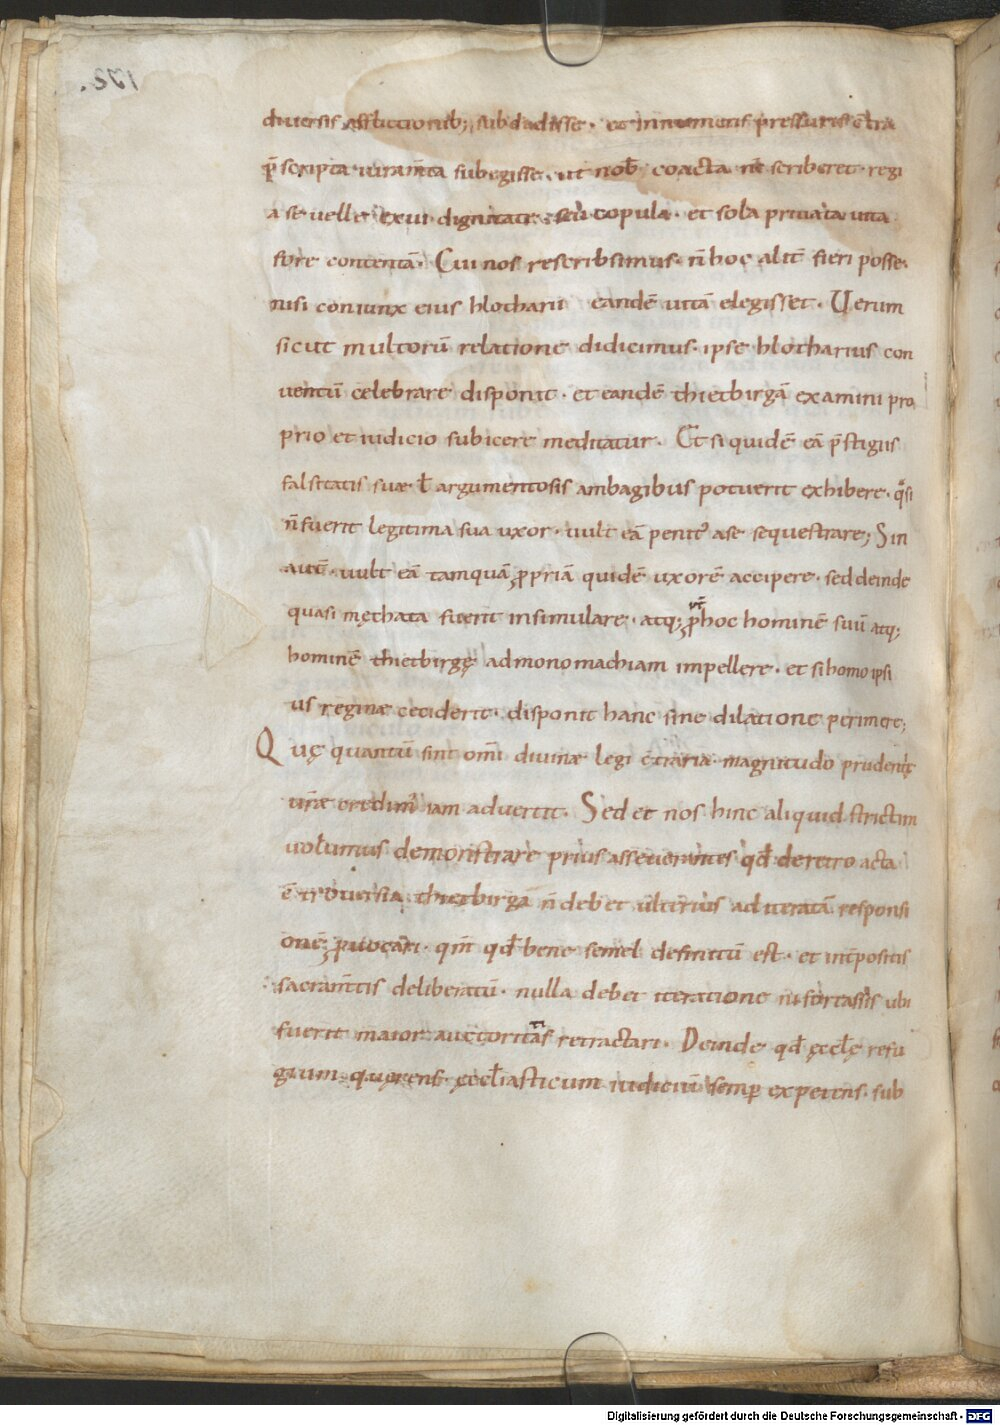 diuersis afflictionib; subdedisse. et innumeris pressuris c̄tra
p̄scripta iuram̄ta subegisse. ut nob̄ coacta n̄ scriberet regi
a se uelle exui dignitate seu copula. et sola priuata uita
fore contentā. Cui nos rescribsimus. n̄ hoc alit̄ fieri posse.
nisi coniunx eius hlotharii eandē uitā elegisset. Uerum
sicut multorū relatione didicimus. ipse hlotharius con
uentū celebrare disponit. et eandē thietbirgā examini pro
prio et iudicio subicere meditatur. Et siquidē eā p̄stigiis
falsitatis suae ł argumentosis ambagibus potuerit exhibere. qͣsi
n̄ fuerit legitima sua uxor. uult eā penit᾽ a se sequestrare; Sin
autē. uult eā tamquā ꝓpriā quidē uxorē accipere. sed deinde
quasi męchata fuerit insimulare. atq; p̱ hoc hominē suū atq;
hominē thietbirgę ad monomachiam impellere. et si homo ipsi
us reginae ceciderit. disponit hanc sine dilatione perimere;
Quę quantū sint om̄i diuinae legi c̄traria. magnitudo prudentię
ur̄ae credim᾽ iam aduertit. Sed et nos hinc aliquid strictim
uolumus demonstrare prius asseuerantes qđ de retro acta
c̄trouersia thietbirgā n̄ debet ulterius ad iteratā responsi
onē ꝓuocari. qm̄ qđ bene semel definitū est. et int̄positis
sacram̄tis deliberatū. nulla debet iteratione nisi fortassis ubi
fuerit maior auctoritas retractari. Deinde qđ ęccl̄ę refu
gium quęrens. ęccl̄iasticum iudiciū semp̱ expetens. sub
173.
Digitalisierung gefördert durch die Deutsche Forschungsgemeinschaft - DFG